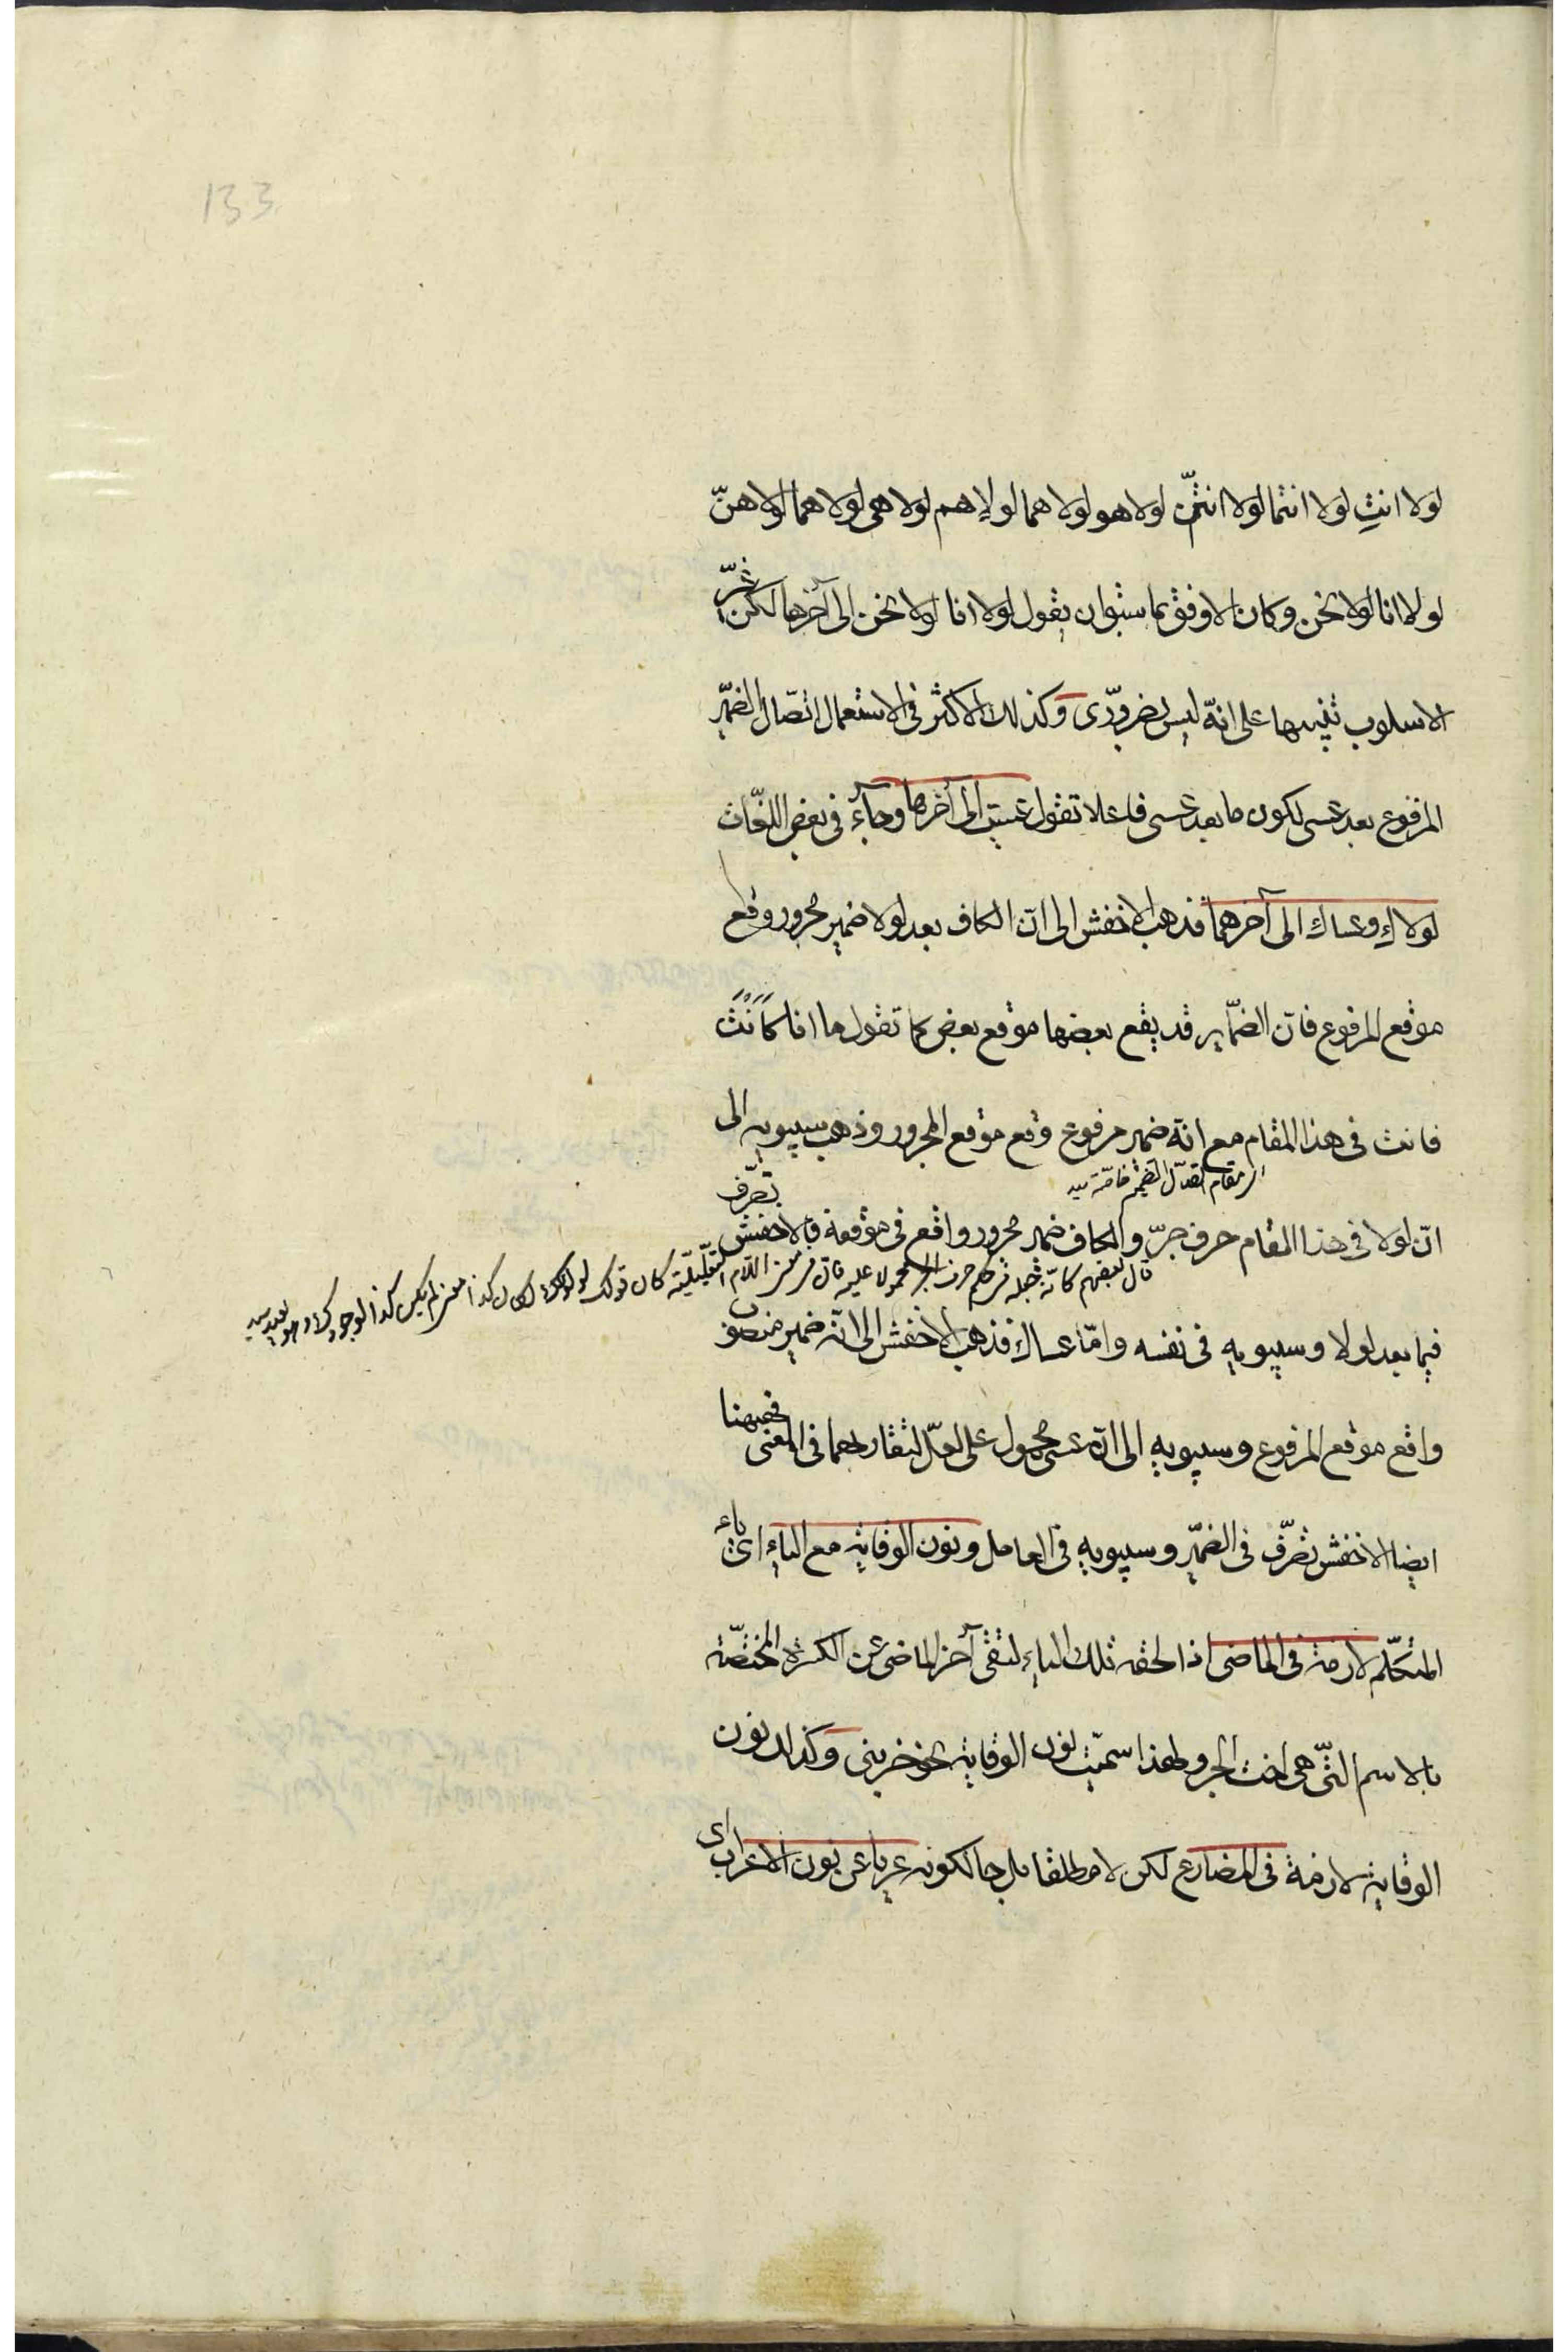 133
لولا انتِ لولا انتما لولا انتنّ لولا هو لولا هما لولا هم لولا هى لولا هما لولا هنّ
لولا انا لولا نحن وكان الاوفق بما سبق ان يقول لولا انا لولا نحن الى آخرها لكن غيّر
الاسلوب تنبيها على انّه ليس بضرورّى وكذلك الاكثر فى الاستعمال اتّصال الضمير
المرفوع بعد عسى لكون ما بعد عسى فاعلا تقول عسيت الى آخرها وجاء فى بعض اللغات
لولاك وعساك الى آخرهما فذهب الاخفش الى انّ الكاف بعد لولا ضمير مجرور وقع
موقع المرفوع فانّ الضماير قد يقع بعضها موقع بعض كما تقول ما انا كَاَنْتَ
فانت فى هذا المقام مع انّه ضمير مرفوع وقع موقع المجرور وذهب سيبويه الى
انّ لولا فى هذا المقام حرف جرّ والكاف ضمير مجرور واقع فى موقعه فالاخفش تصّرف
قال بعضهم كانّه جعله فى حكم حرف الجر محمولا عليه
فيما بعد لولا وسيبويه فى نفسه وامّا عساك فذهب الاخفش الى انّه ضمير منصوب
واقع موقع المرفوع وسيبويه الى انّ عسى محمول على لعلّ لتقاربهما فى المعنى فههنا
ايضا الاخفش تصّرف فى الضمير وسيبويه فى العامل ونون الوقاية مع الياء اى ياء
المتكلّم لازمة فى الماضى اذا لحقه تلك الياء لتقى آخر الماضى عن الكسرة المختصّة
بالاسم التّى هى اخت الجر ولهذا سمّيت نون الوقاية نحو ضربنى وكذا نون
الوقاية لازمة فى المضارع لكن لا مطلقا بل حالكونه عريا عن نون الاعراب اى